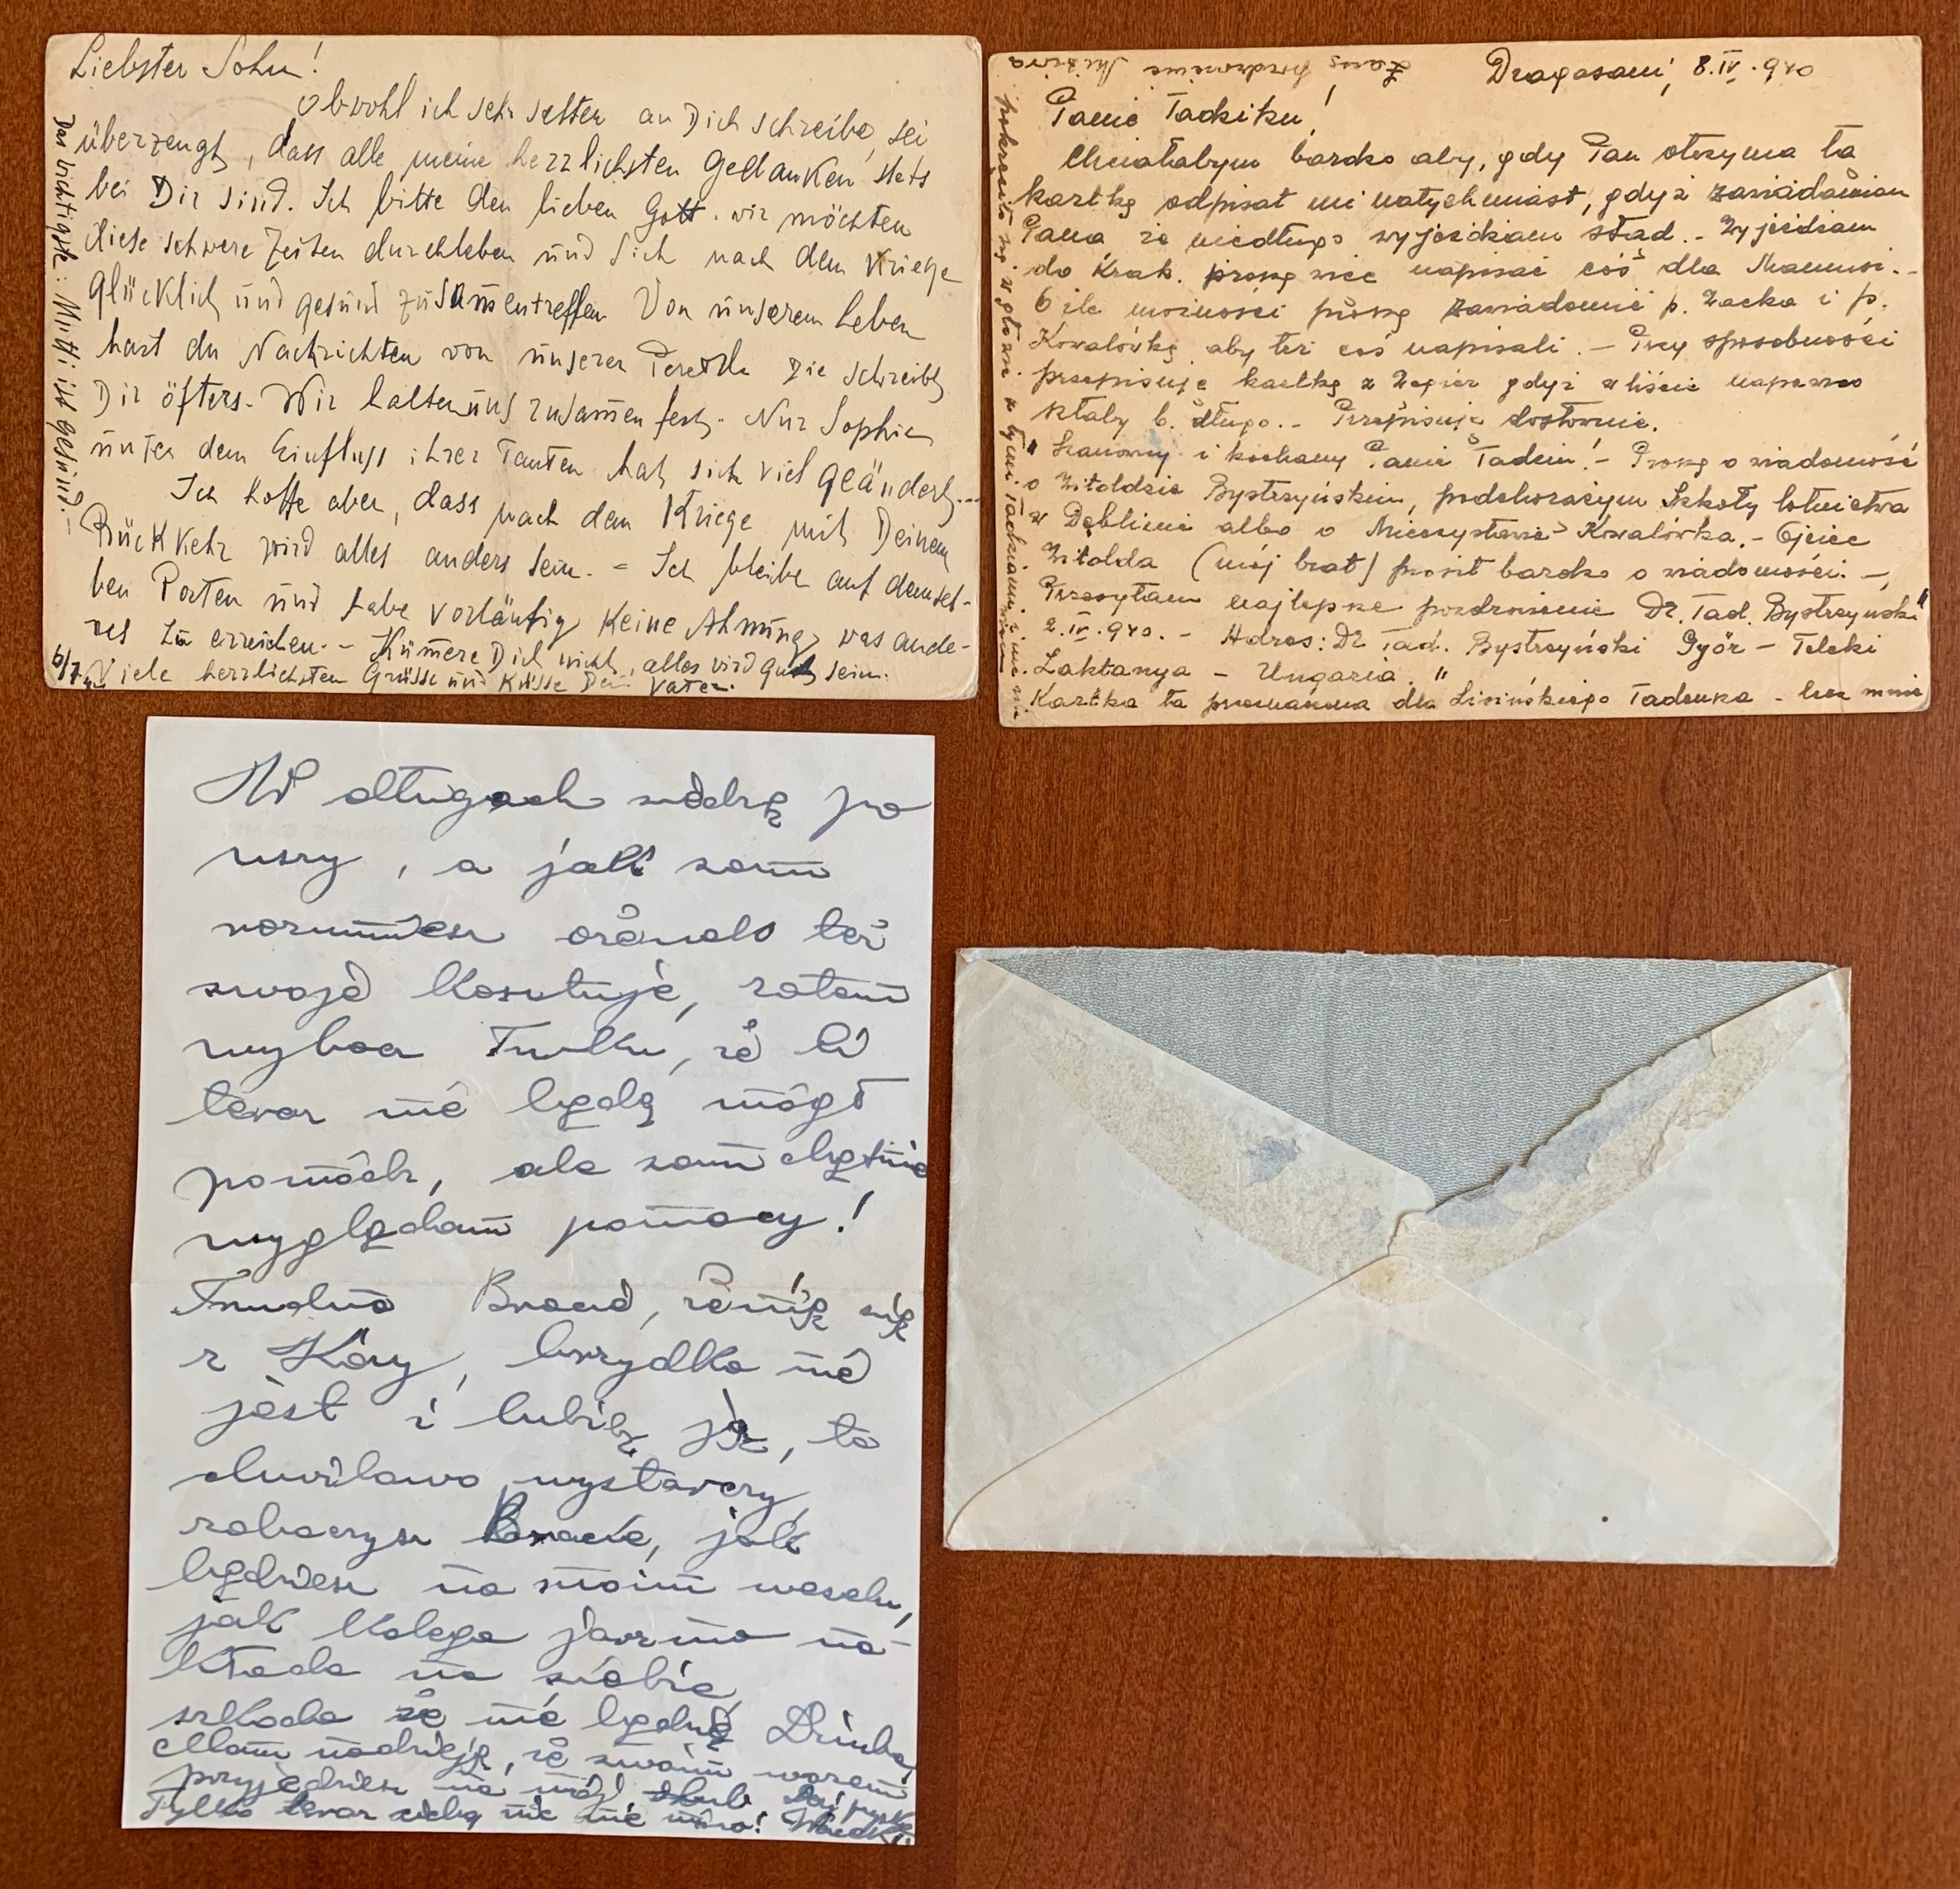 Liebster Sohn!
Obwohl ich sehr selten an Dich schreibe, sei
überzeugt, dass alle meine herzlichsten Gedanken stets
bei Dir sind. Ich bitte den lieben Gott. wir möchten
diese schwere Zeiten durchleben und sich nach dem Kriege
glücklich und gesund zusammentreffen Von unserem Leben
hast du Nachrichten von unserer Die schreibt
Dir öfters. Wir halten uns zusammen fest. Nur Sophie
unter dem Einfluss ihrer Tanten hat sich viel geändert...
Ich hoffe aber, dass nach dem Kriege mit Deinem
Rückkehr wird alles anders sein. - Ich bleibe auf demsel-
ben Posten und habe vorläufig keine Ahnung was ande-
res zu erreichen. - Kümmere Dich nicht, alles wird gut sein.
Viele herzlichsten Grüsse und Küsse Dein Vater.
Das wichtigste: Mutti ist gesund. -
Dragasani, 8.IV.940
Panie Tadziku!
Chciałabym bardzo aby, gdy Pan otrzyma tą
kartkę odpisał mi natychmiast, gdyż zawiadamiam
Pana że niedługo wyjeżdżam stąd. - Wyjeżdżam
do Krak. proszę więc napisać coś dla Mamusi. -
O ile możności proszę zawiadomić p. Zacka i p.
Kowalówkę aby też coś napisali. - Przy sposobności
przepisuję kartkę z Węgier gdyż w liście napewno
szłaby b. długo. - Przepisuję dosłownie.
"Szanowny i kochany Panie Tadziu! - Proszę o wiadomość
o Witoldzie Bystrzyńskim, podchorążym Szkoły lotnictwa
w Dęblinie albo o Mieczysławie Kowalówka. - Ojciec
Witolda (mój brat) prosił bardzo o wiadomości. -
Przesyłam najlepsze pozdrowienie Dr. Tad. Bystrzyński"
2.IV.940. - Adres: Dr Tad. Bystrzyński Győr - Teleki
Laktanya - Ungaria."
Kartka ta prze dla Lisińskiego Tadeuka - lecz mnie
pokręciło się w głowie z tymi Tadkami i
Łączę pozdrowienie
W długach siedzę po
uszy, a jak sam
rozumiesz ożenek też
swoje kosztuje, zatem
wybacz Trulku, że Ci
teraz nie będę mógł
pomódz, ale sam chętnie
wyglądam pomocy!
Trudno Bracie, żenię się
z Kāvy, brzydka nie
jest i lubię ją, to
chwilowo wystarczy,
zobaczysz Bracie, jak
będziesz na moim weselu,
jak kolega jarzmo na-
kłada na siebie,
szkoda że nie będzie Dziuba,
Mam nadzieję, że swoim wozem
przyjedziesz na mój ślub
Tylko teraz nic nie mów!